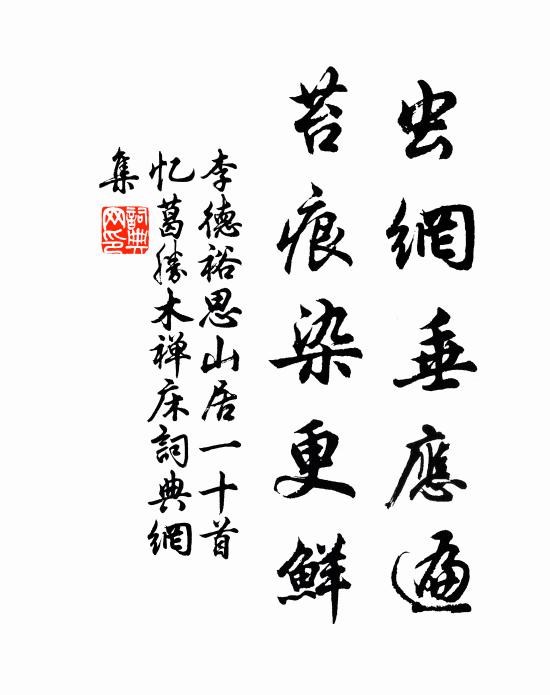 虫網垂應遍
苔痕染更鮮
李德裕思山居一十首
忆葛勝木禅床詞典網
集
詞典網印